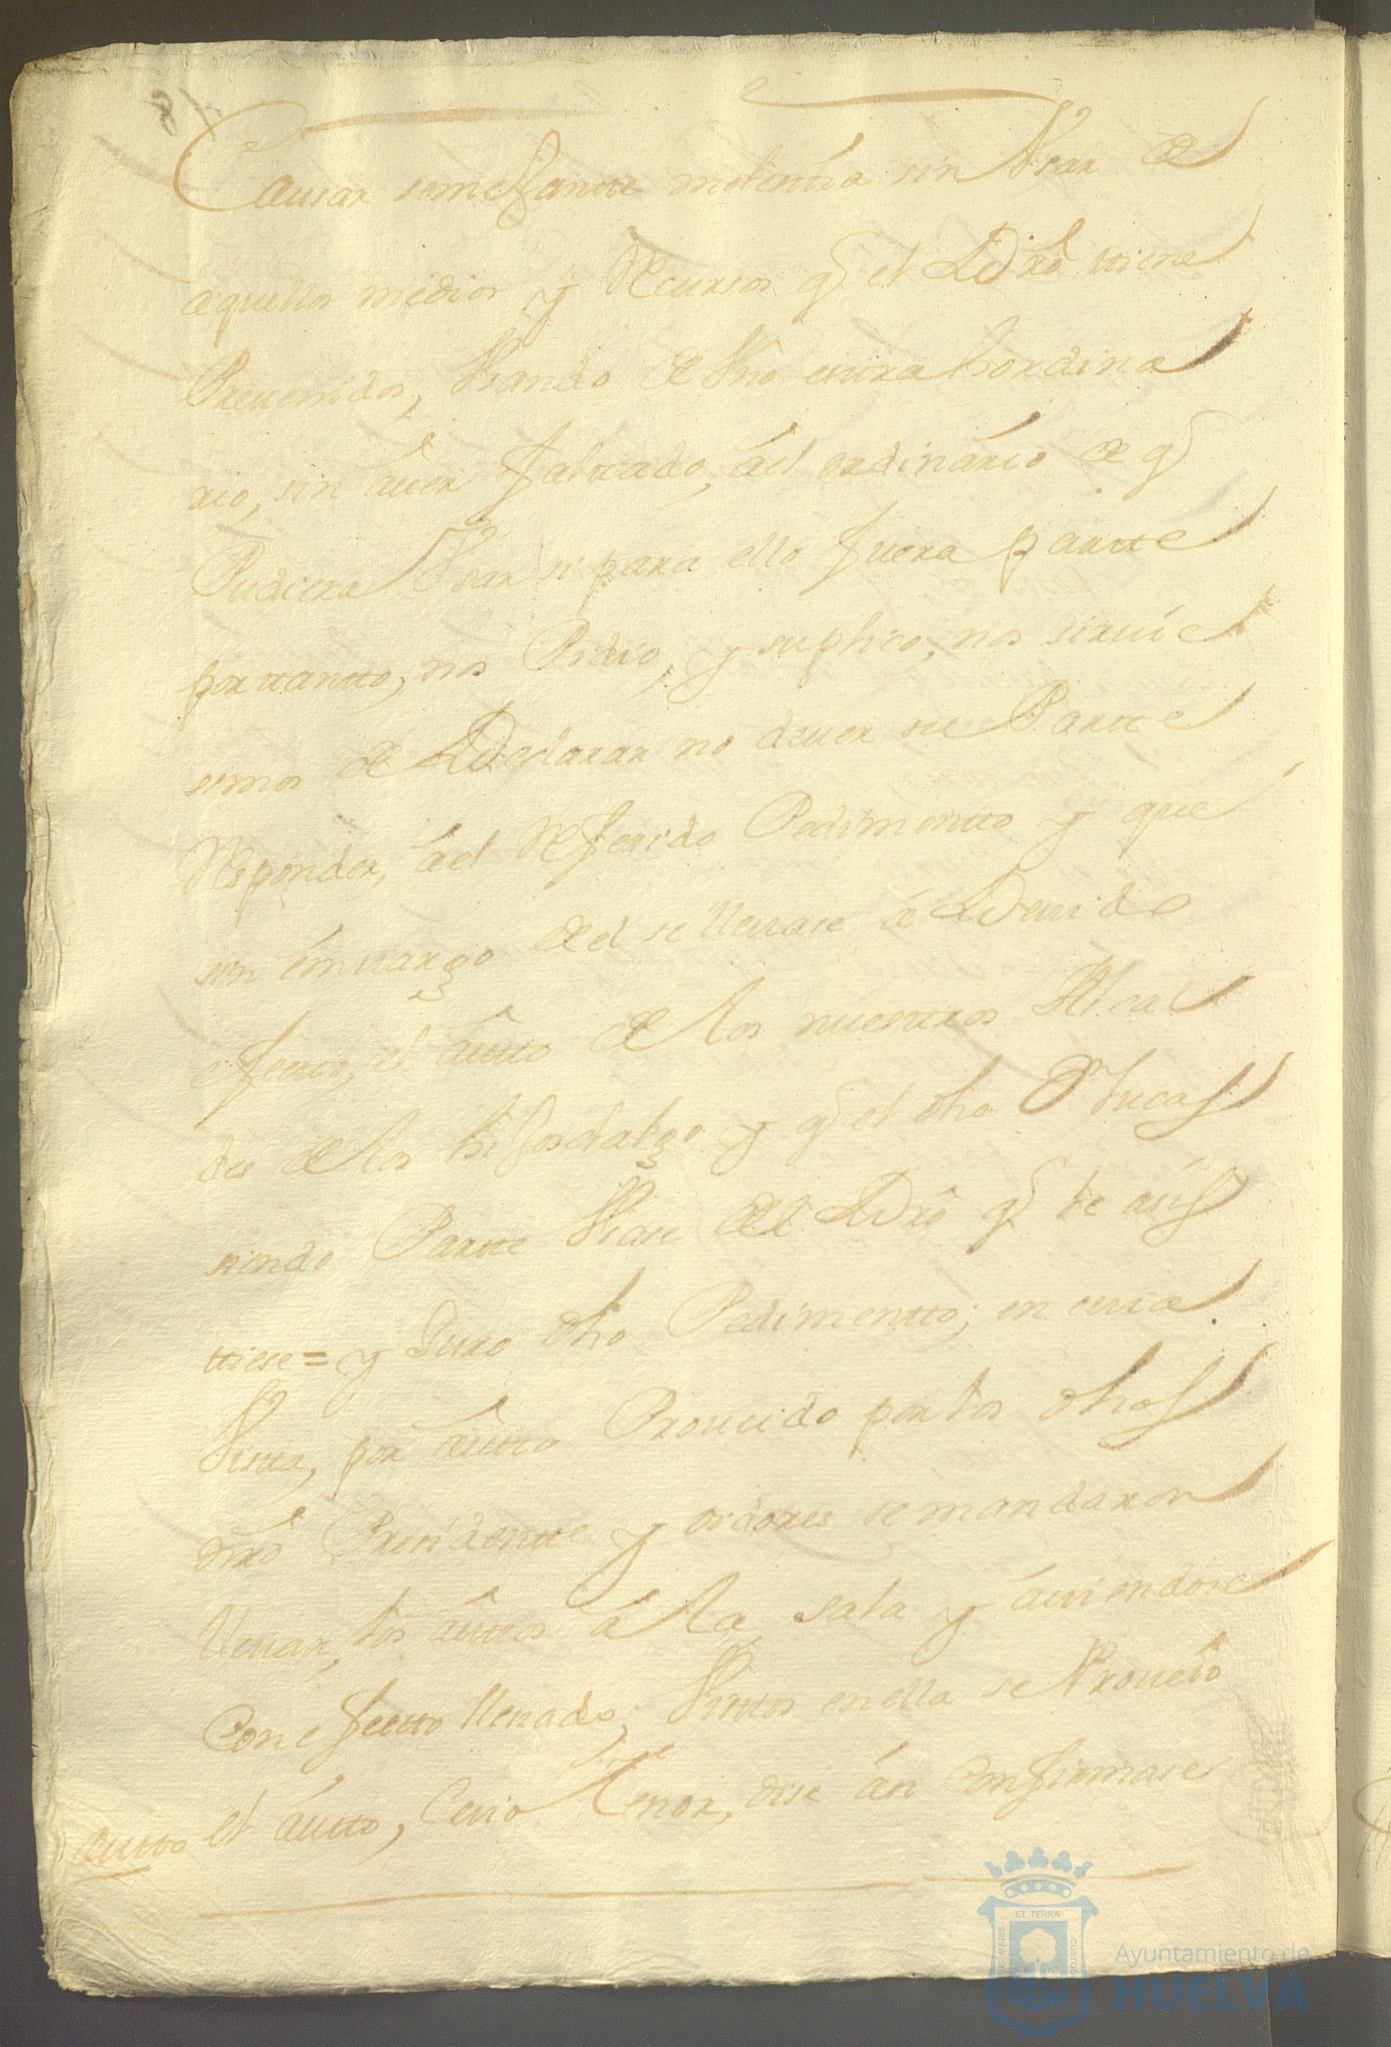 Causar semejantte molestia sin Vsar de
aquellos medios y Recursos q̃ el Dr̃o ttiene
Preuenidos, Vsando de Vno exttrahordina
rio, sin áuer faltado, ael ordinário de q̃
Pudiera Vsar si para ello fuera partte
por ttantto, nos Pidio, y suplico, nos siruie
semos de Declarar no deuer su Partte
Responder, áel Referido Pedimentto y que
sin émuargo del se lleuase á Deuido
efectto, el áutto de los nuesttros Alcal
des de los hijosdalgo y q̃ el dho Dn Lucas
siendo Partte Vsase del Dr̃o q̃ le asis
ttiese = y Juro dho Pedimentto; en cuia
Vistta, por áutto Proueido por los dhos
nr̃o Presidentte y oidores se mandaron
lleuar, los áuttos á la sala y áuiendose
Con efectto lleuado; Visttos en ella se Proueió
Autto el áutto, Cuio ttenor, dise ásí Confirmase
Ayuntamiento de
HUELVA